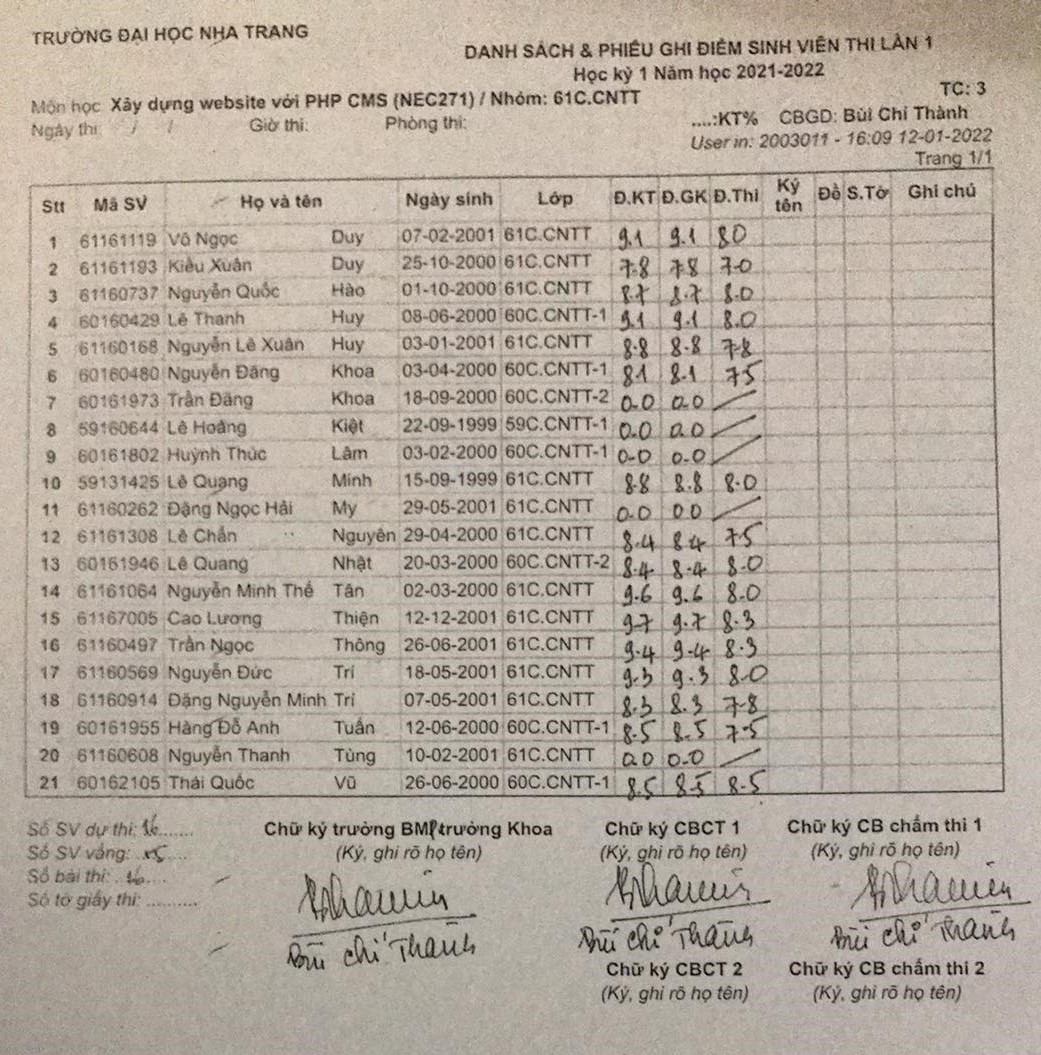 TRƯỜNG ĐẠI HỌC NHA TRANG
DANH SÁCH & PHIẾU GHI ĐIỂM SINH VIÊN THI LẦN 1
Học kỳ 1 Năm học 2021-2022
Môn học Xây dựng website với PHP CMS (NEC271) / Nhóm: 61C.CNTT TC: 3
Ngày thi: / / Giờ thi: Phòng thi: ....:KT% CBGD: Bùi Chí Thành
User in: 2003011 - 16:09 12-01-2022
Trang 1/1
Stt Mã SV Họ và tên Ngày sinh Lớp Đ.KT Đ.GK Đ.Thi Ký tên Đề S.Tờ Ghi chú
1 61161119 Võ Ngọc Duy 07-02-2001 61C.CNTT 9.1 9.1 8.0
2 61161193 Kiều Xuân Duy 25-10-2000 61C.CNTT 7.8 7.8 7.0
3 61160737 Nguyễn Quốc Hào 01-10-2000 61C.CNTT 8.7 8.7 8.0
4 60160429 Lê Thanh Huy 08-06-2000 60C.CNTT-1 9.1 9.1 8.0
5 61160168 Nguyễn Lê Xuân Huy 03-01-2001 61C.CNTT 8.8 8.8 7.8
6 60160480 Nguyễn Đăng Khoa 03-04-2000 60C.CNTT-1 8.1 8.1 7.5
7 60161973 Trần Đăng Khoa 18-09-2000 60C.CNTT-2 0.0 0.0 /
8 59160644 Lê Hoàng Kiệt 22-09-1999 59C.CNTT-1 0.0 0.0 /
9 60161802 Huỳnh Thúc Lâm 03-02-2000 60C.CNTT-1 0.0 0.0 /
10 59131425 Lê Quang Minh 15-09-1999 61C.CNTT 8.8 8.8 8.0
11 61160262 Đặng Ngọc Hải My 29-05-2001 61C.CNTT 0.0 0.0 /
12 61161308 Lê Chấn Nguyên 29-04-2000 61C.CNTT 8.4 8.4 7.5
13 60161946 Lê Quang Nhật 20-03-2000 60C.CNTT-2 8.4 8.4 8.0
14 61161064 Nguyễn Minh Thế Tân 02-03-2000 61C.CNTT 9.6 9.6 8.0
15 61167005 Cao Lương Thiện 12-12-2001 61C.CNTT 9.7 9.7 8.3
16 61160497 Trần Ngọc Thông 26-06-2001 61C.CNTT 9.4 9.4 8.3
17 61160569 Nguyễn Đức Trí 18-05-2001 61C.CNTT 9.3 9.3 8.0
18 61160914 Đặng Nguyễn Minh Trí 07-05-2001 61C.CNTT 8.3 8.3 7.8
19 60161955 Hàng Đỗ Anh Tuấn 12-06-2000 60C.CNTT-1 8.5 8.5 7.5
20 61160608 Nguyễn Thanh Tùng 10-02-2001 61C.CNTT 0.0 0.0 /
21 60162105 Thái Quốc Vũ 26-06-2000 60C.CNTT-1 8.5 8.5 8.5
Số SV dự thi: 16...... Chữ ký trưởng BM/trưởng Khoa Chữ ký CBCT 1 Chữ ký CB chấm thi 1
Số SV vắng: 05.... (Ký, ghi rõ họ tên) (Ký, ghi rõ họ tên) (Ký, ghi rõ họ tên)
Số bài thi: 16....
Số tờ giấy thi: ..........
Bùi Chí Thành Bùi Chí Thành Bùi Chí Thành
Chữ ký CBCT 2 Chữ ký CB chấm thi 2
(Ký, ghi rõ họ tên) (Ký, ghi rõ họ tên)